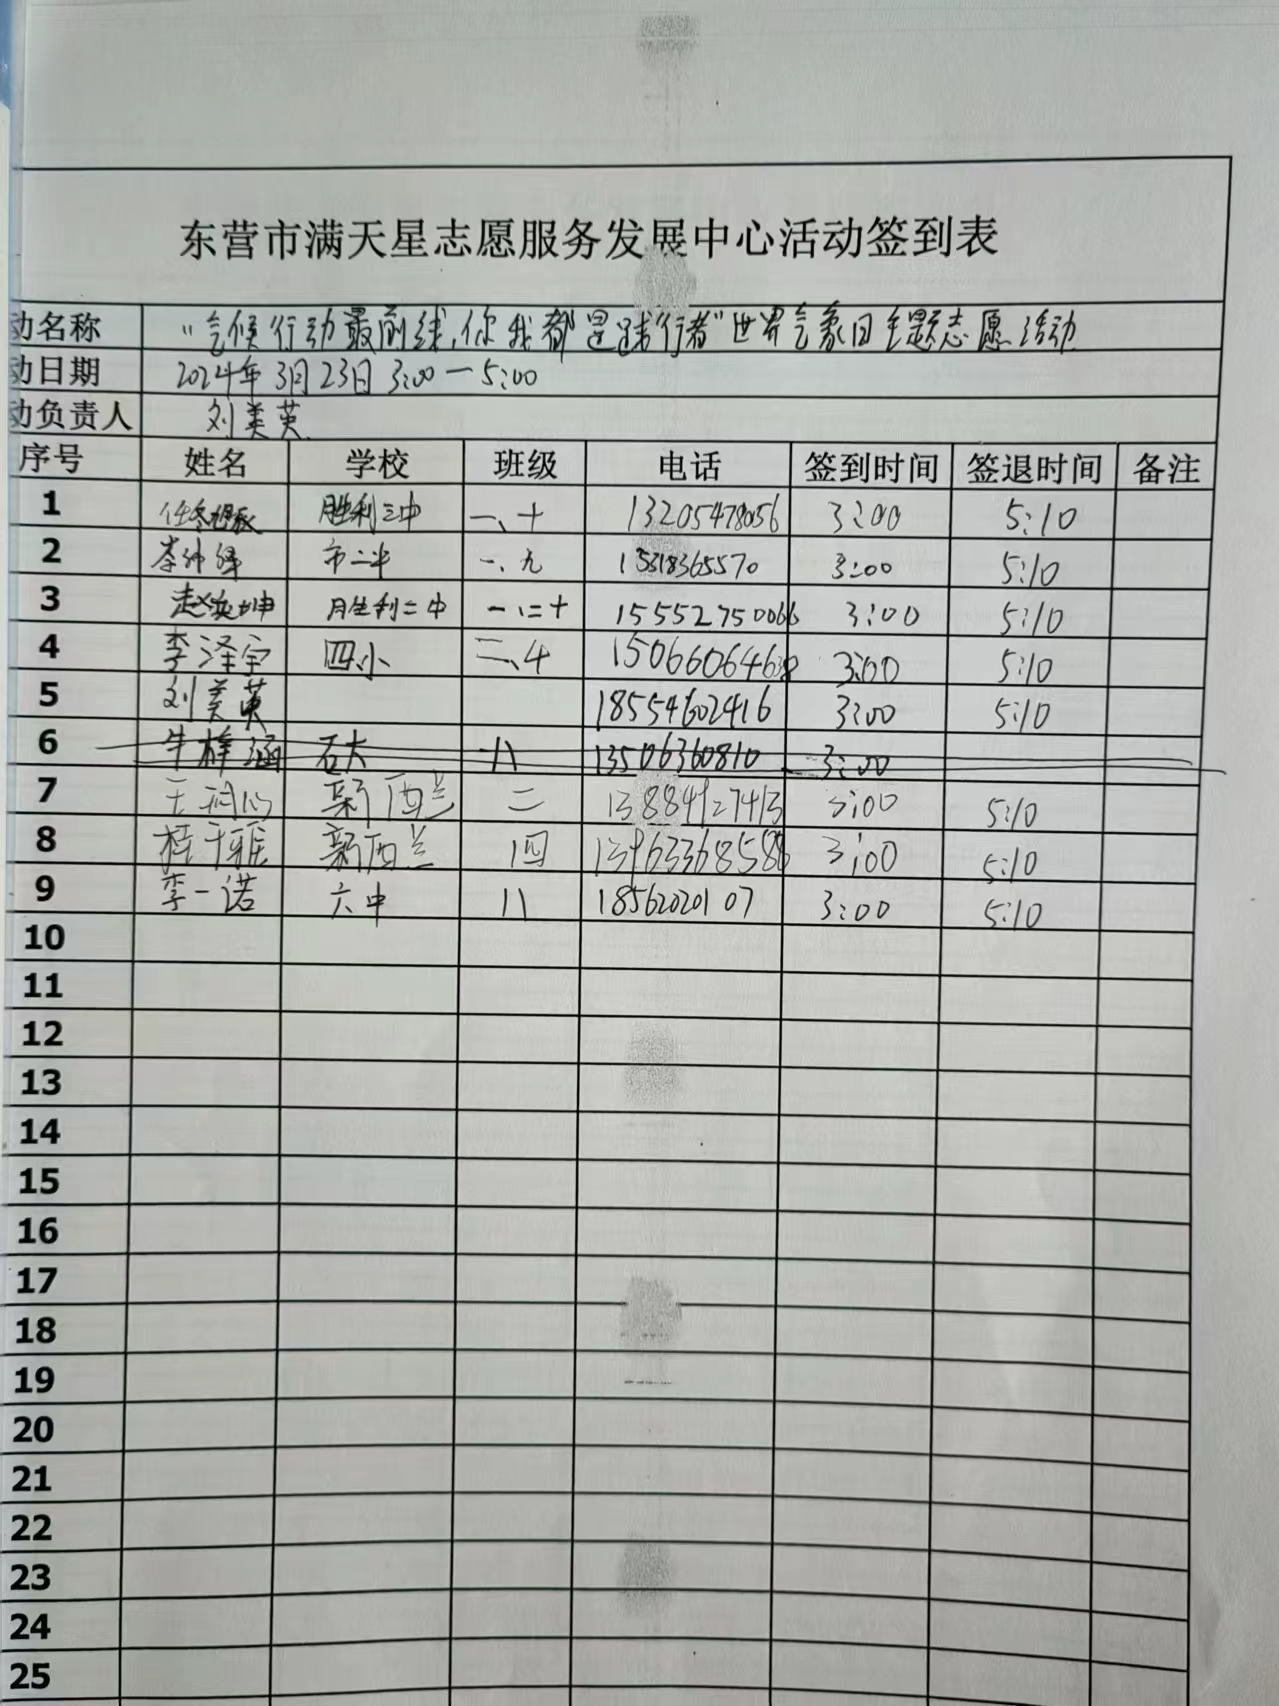 东营市满天星志愿服务发展中心活动签到表
动名称 “气候行动最前线，你我都是“行者”世界气象日主题志愿活动
动日期 2024年3月23日 3:00-5:00
动负责人 刘美英
序号 姓名 学校 班级 电话 签到时间 签退时间 备注
1 胜利三中 一、十 13205478056 3:00 5:10
2 李 市二中 一、九 15318365570 3:00 5:10
3 赵 坤 胜利二中 一、二十 15552750066 3:00 5:10
4 李泽宇 四小 二、4 3:00 5:10
5 刘美英 18554602416 3:00 5:10
6 牛梓涵 石大 八 13506360810 3:00
7 新西兰 二 13884127413 3:00 5:10
8 桂千雅 新西兰 四 13963368586 3:00 5:10
9 李一诺 六中 八 18562020107 3:00 5:10
10
11
12
13
14
15
16
17
18
19
20
21
22
23
24
25